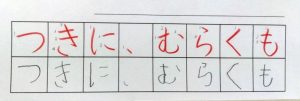 つきに、むらくも
つきに、むらくも